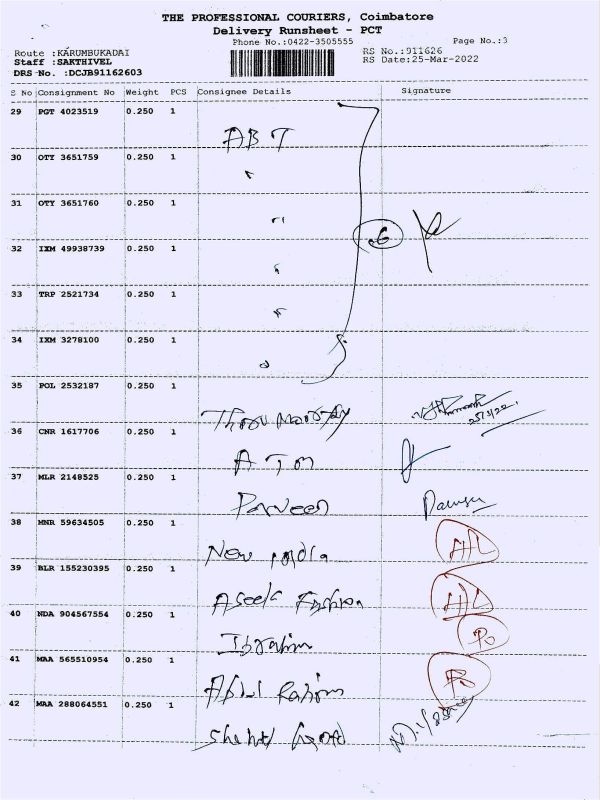 THE PROFESSIONAL COURIERS, Coimbatore
Delivery Runsheet - PCT
Phone No.:0422-3505555 Page No.:3
Route :KARUMBUKADAI RS No.:911626
Staff :SAKTHIVEL RS Date:25-Mar-2022
DRS No. :DCJB91162603
S No Consignment No Weight PCS Consignee Details Signature
29 PGT 4023519 0.250 1
ABT
30 OTY 3651759 0.250 1
31 OTY 3651760 0.250 1
6
32 IXM 49938739 0.250 1
33 TRP 2521734 0.250 1
34 IXM 3278100 0.250 1
35 POL 2532187 0.250 1
25/3/22
36 CNR 1617706 0.250 1
ATM
37 MLR 2148525 0.250 1
Parveen
38 MNR 59634505 0.250 1
New India
39 BLR 155230395 0.250 1
Aseela Fashion
40 NDA 904567554 0.250 1
Ibrahim
41 MAA 565510954 0.250 1
Abdul Rahim
42 MAA 288064551 0.250 1